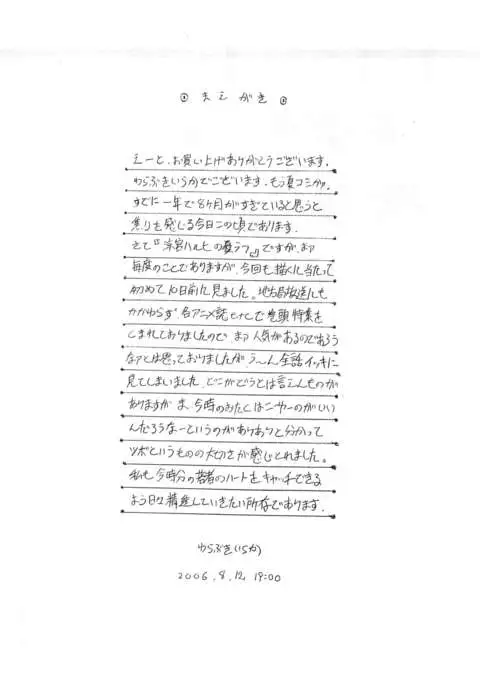 ◎ まえがき ◎
えーと、お買い上げありがとうございます。
わらぶきいらかでございます。もう夏コミかぁ。
すでに一年で8ヶ月がすぎていると思うと
焦りを感じる今日この頃であります。
さて『涼宮ハルヒの
毎度のことでありますが、今回も描くに当たって
初めて10日前に見ました。地方局放送にも
かかわらず、各アニメ誌とかで巻頭特集を
しまれておりましたので、まァ人気があるのであろう
なァとは思っておりましたが、う〜ん全話イッキに
見てしまいました。どこがどうとは言えんものが
ありますが、ま、今時のおたくはこーゆーのがいい
んだろうなーというのがありありと分かって
ツボというものの大切さが感じとれました。
私も今時分の若者のハートをキャッチできる
よう日々精進していきたい所存であります。
わらぶきいらか
2006.8.12. 19:00